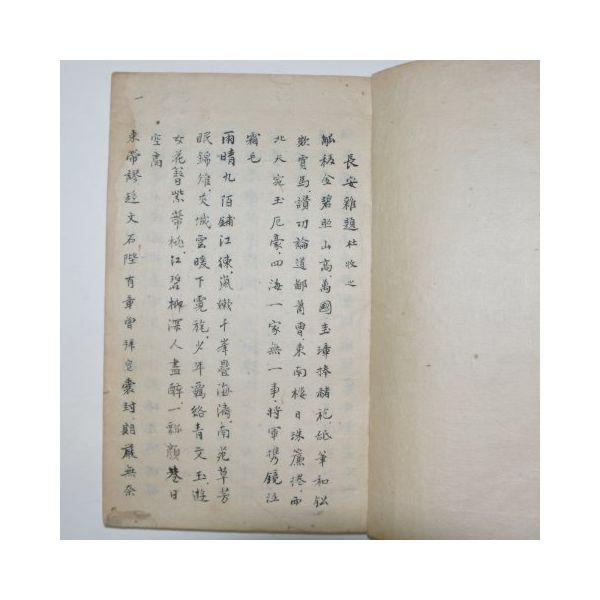 長安雜題 杜牧之
觚稜金碧照山高、萬國圭璋捧赭袍、舐筆和鈆
欺賈馬、讚功論道鄙蕭曹、東南樓日珠簾捲、西
北天宛玉厄豪、四海一家無一事、將軍携鏡泣
霜毛
雨晴九陌鋪江練、嵐嫩千峯疊海濤、南苑草芳
眠錦雉、夾城雲暖下霓旄、少年羈絡青文玉、遊
女花簪紫蒂桃、江碧柳深人盡醉、一瓢顏巷日
空高
束帶謬趍文石陛有章曾拜皂囊封、期嚴無奈
一